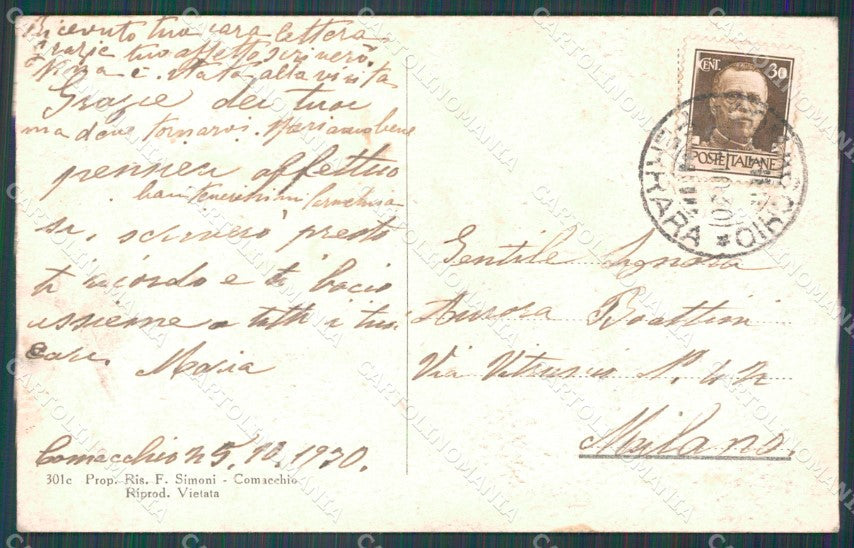 Ricevuto tua cara lettera
Grazie tuo affetto scriverò.
Nina è stata alla visita
Grazie dei tuoi
ma deve tornarvi. Speriamo bene
pensieri affettuo
baci tenerissimi
si, scriverò presto
ti ricordo e ti bacio
assieme a tutti i tuoi
cari. Maria
Comacchio 25.10.1930.
301c Prop. Ris. F. Simoni - Comacchio
Riprod. Vietata
CENT. 30
POSTE ITALIANE
FERRARA
Gentile Signora
Aurora Boattini
Via Vitruvio N. 42
Milano.
CARTOLINOMANIA